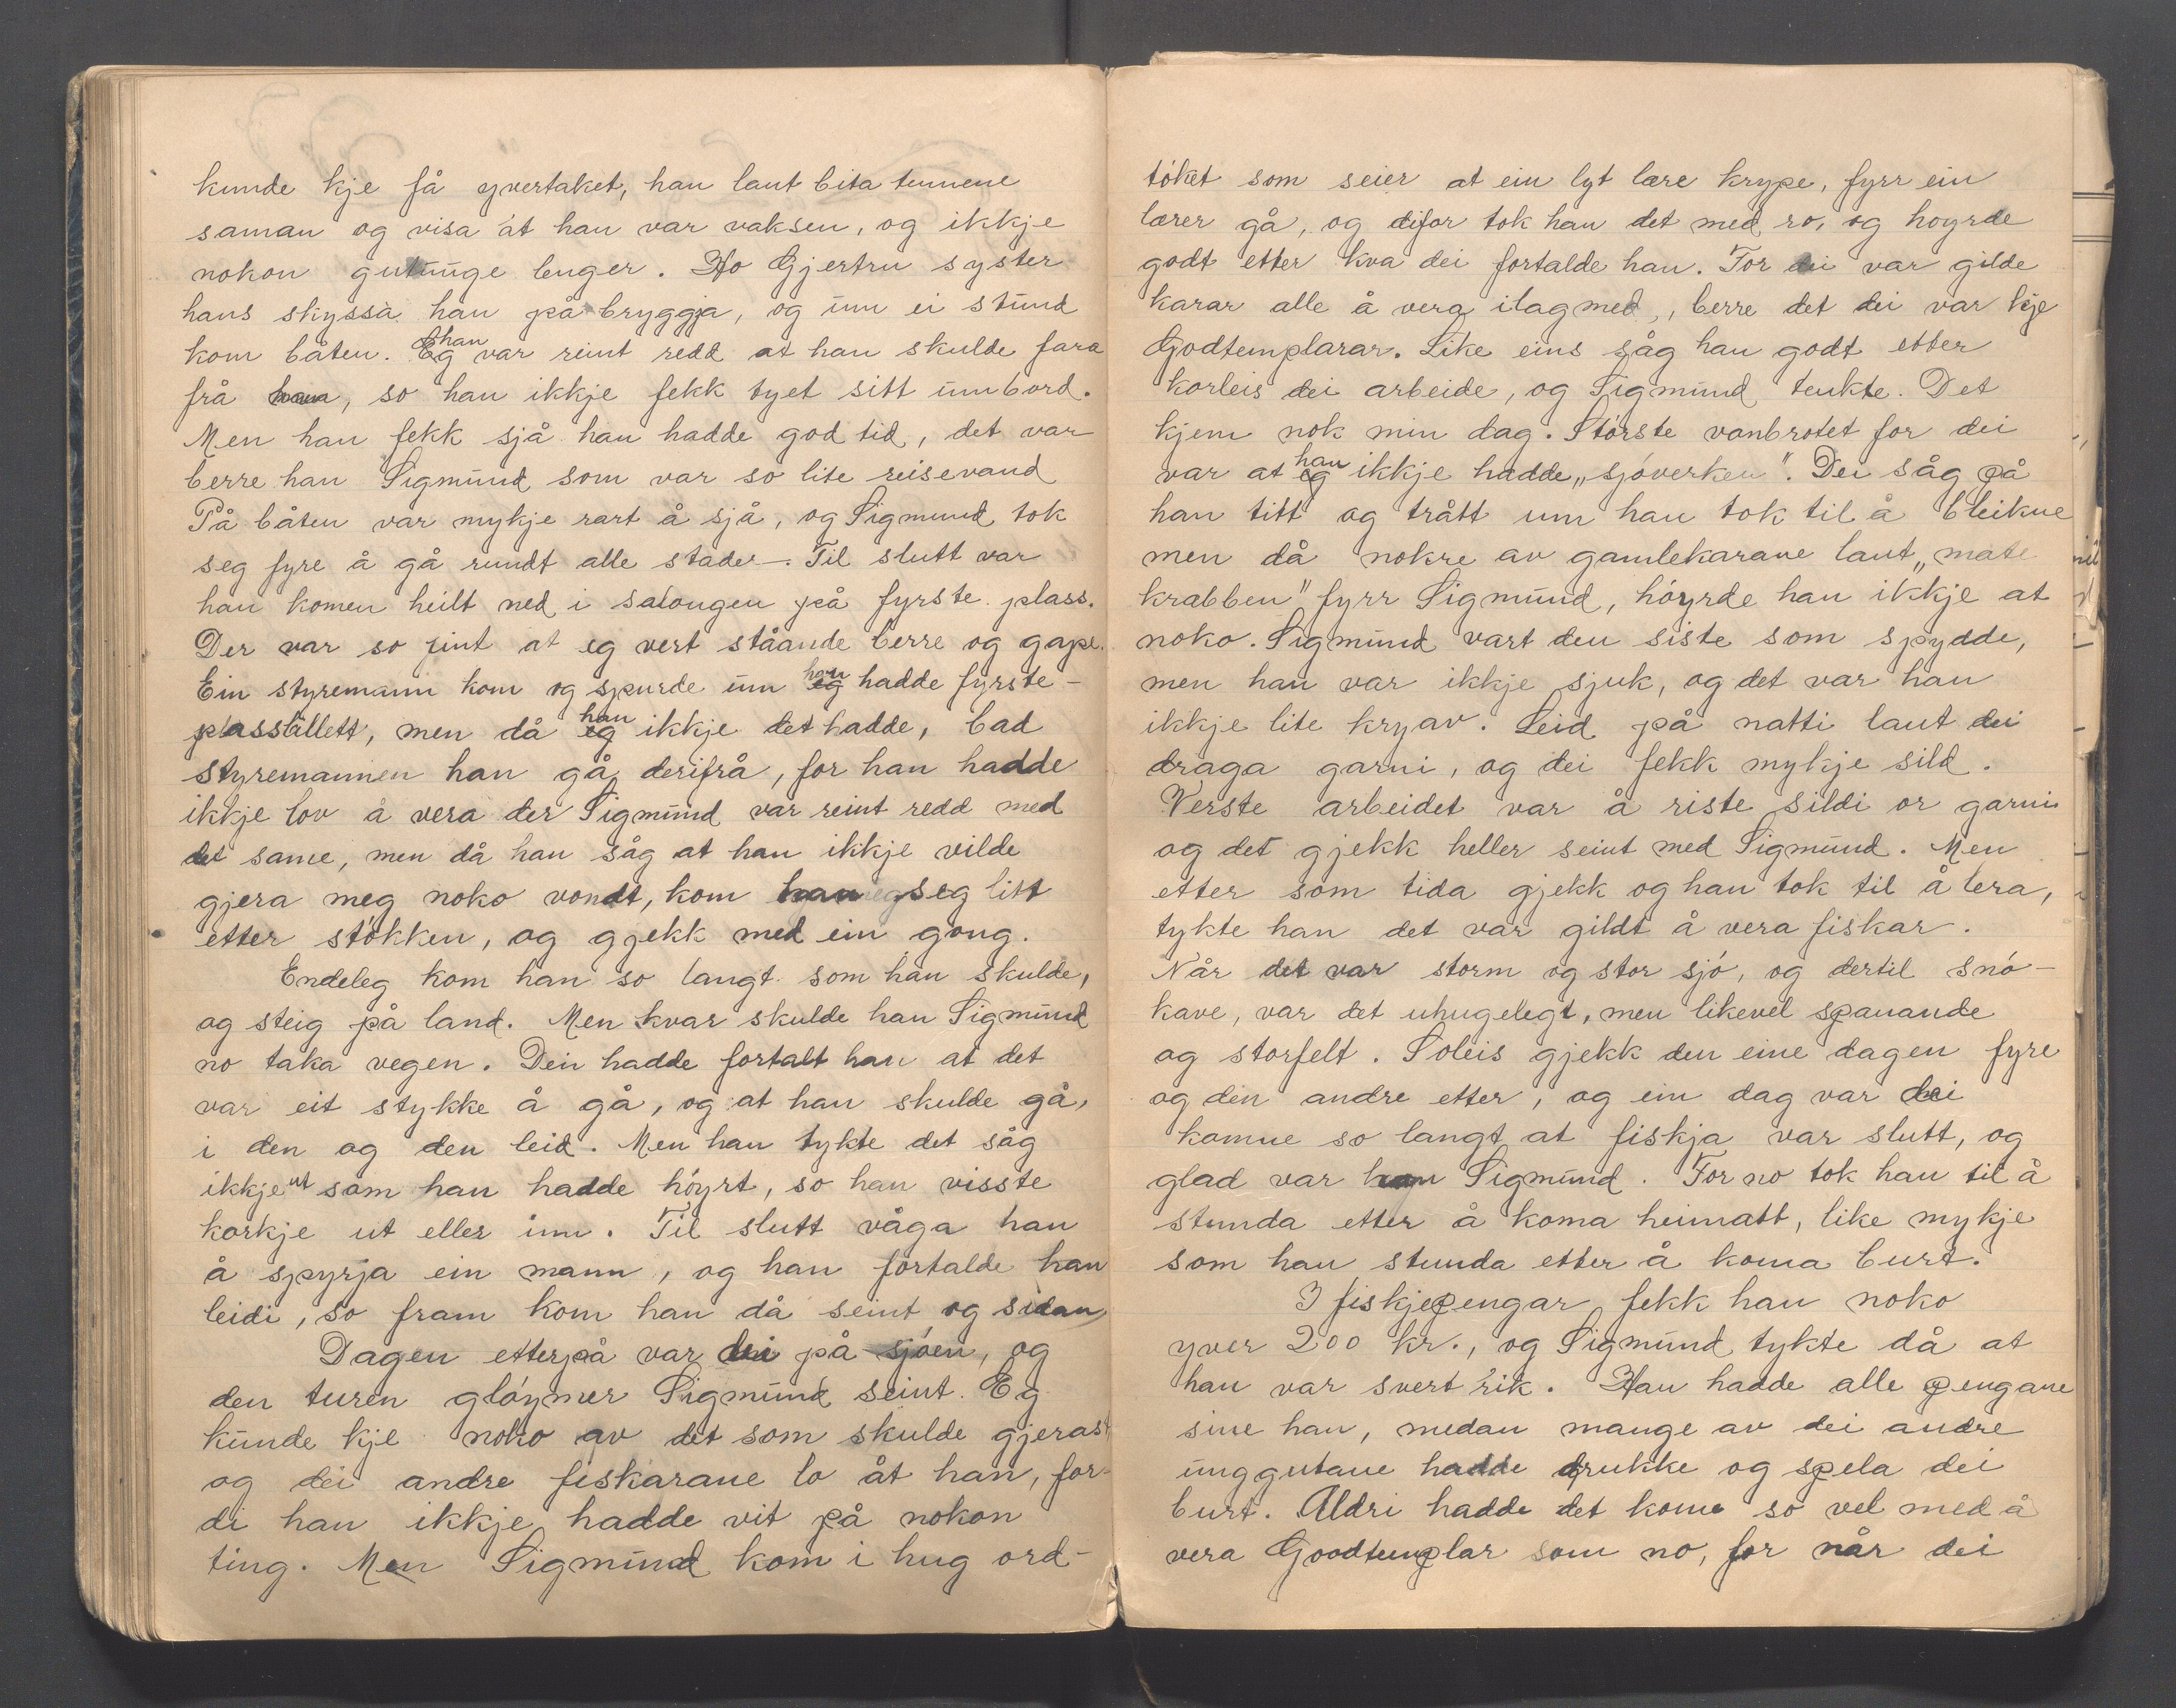 kunde kje få yvertaket, han laut bita tennene
saman og visa at han var vaksen, og ikkje
nokon gutunge lenger. Ho Gjertru syster
hans skyssa han på bryggja, og um ei stund
kom båten. Eg han var reint redd at han skulde fara
frå han, so han ikkje fekk tyet sitt umbord.
Men han fekk sjå han hadde god tid, det var
berre han Sigmund som var so lite reisevand
På båten var mykje rart å sjå, og Sigmund tok
seg fyre å gå rundt alle stader. Til slutt var
han komen heilt ned i salongen på fyrste plass.
Der var so fint at eg vert ståande berre og gape.
Ein styremann kom og spurde um eg han hadde fyrste-
plassbillett, men då eg han ikkje det hadde, bad
styremannen han gå derifrå, for han hadde
ikkje lov å vera der Sigmund var reint redd med
det same, men då han såg at han ikkje vilde
gjera meg noko vondt, kom han seg litt
etter støkken, og gjekk med ein gong.
Endeleg kom han so langt som han skulde,
og steig på land. Men kvar skulde han Sigmund
no taka vegen. Dei hadde fortalt han at det
var eit stykke å gå, og at han skulde gå,
i den og den leid. Men han tykte det såg
ikkje ut som han hadde høyrt, so han visste
korkje ut eller inn. Til slutt våga han
å spyrja ein mann, og han fortalde han
leidi, so fram kom han då seint og sidan
Dagen etterpå var dei på sjøen, og
den turen gløymer Sigmund seint. Eg
kunde kje noko av det som skulde gjerast
og dei andre fiskarane lo åt han, for-
di han ikkje hadde vit på nokon
ting. Men Sigmund kom i hug ord-
tøket som seier at ein lyt lære krype, fyrr ein
lærer gå, og difor tok han det med ro, og hoyrde
godt etter kva dei fortalde han. For dei var gilde
karar alle å vera ilag med, berre det dei var kje
Godtemplarar. Like eins såg han godt etter
korleis dei arbeide, og Sigmund tenkte. Det
kjem nok min dag. Største vanbrotet for dei
var at eg han ikkje hadde „sjøverken". Dei såg på
han titt og trått um han tok til å bleikne
men då nokre av gamlekarane laut „mate
krabben" fyrr Sigmund, høyrde han ikkje at
noko. Sigmund vart den siste som spydde,
men han var ikkje sjuk, og det var han
ikkje lite kry av. Leid på natti laut dei
draga garni, og dei fekk mykje sild.
Verste arbeidet var å riste sildi or garni
og det gjekk heller seint med Sigmund. Men
etter som tida gjekk og han tok til å læra,
tykte han det var gildt å vera fiskar.
Når det var storm og stor sjø, og dertil snø-
kave, var det uhugelegt, men likevel spanande
og storfelt. Soleis gjekk den eine dagen fyre
og den andre etter, og ein dag var dei
komne so langt at fiskja var slutt, og
glad var han Sigmund. For no tok han til å
stunda etter å koma heimatt, like mykje
som han stunda etter å koma burt.
I fiskjepengar fekk han noko
yver 200 kr., og Sigmund tykte då at
han var svert rik. Han hadde alle pengane
sine han, medan mange av dei andre
unggutane hadde drukke og spela dei
burt. Aldri hadde det kome so vel med å
vera Goodtemplar som no, for når dei